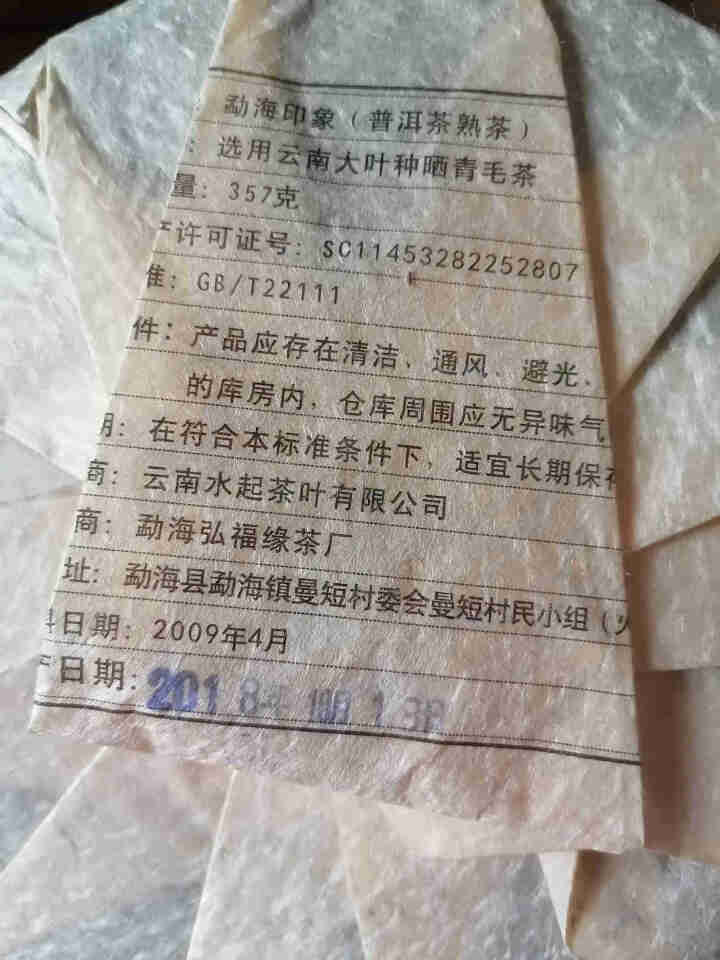 ：勐海印象（普洱茶熟茶）
：选用云南大叶种晒青毛茶
量：357克
产许可证号：SC11453282252807
准：GB/T22111
件：产品应存在清洁、通风、避光、
的库房内，仓库周围应无异味气
期：在符合本标准条件下，适宜长期保存
商：云南水起茶叶有限公司
商：勐海弘福缘茶厂
址：勐海县勐海镇曼短村委会曼短村民小组（
料日期：2009年4月
产日期：2018年